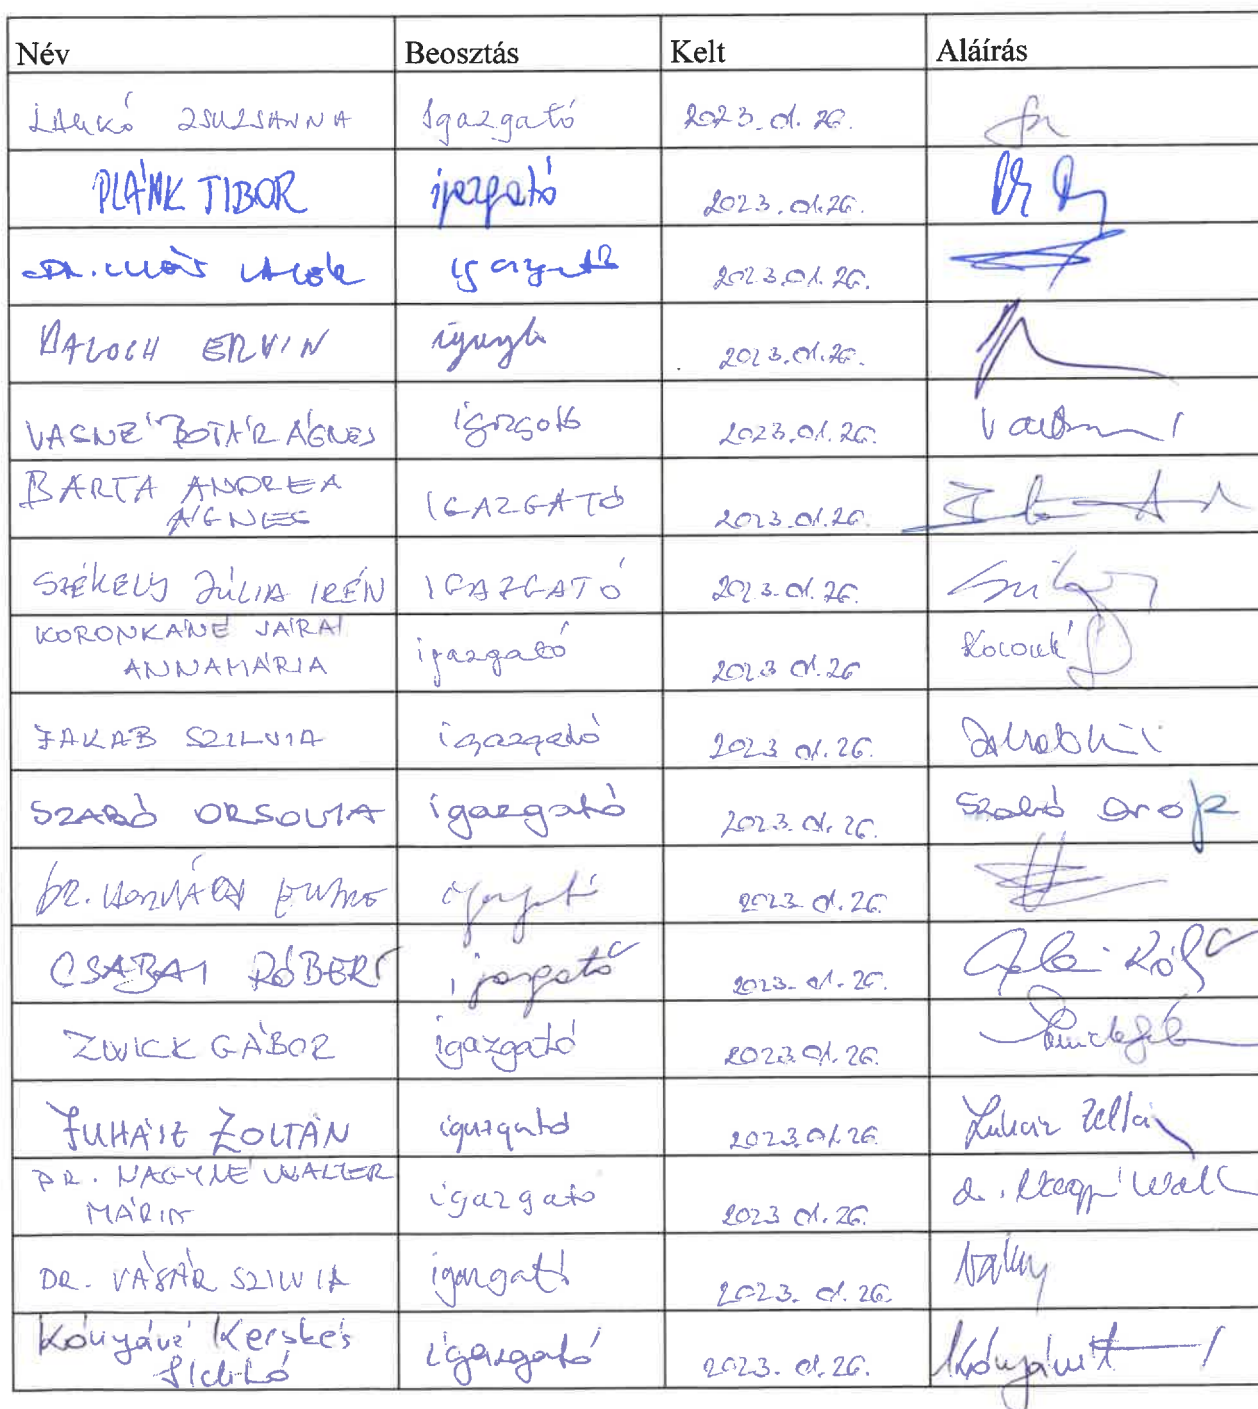 Név Beosztás Kelt Aláírás
LAUKÓ ZSUZSANNA Igazgató 2023.01.26.
PLÁNK TIBOR igazgató 2023.01.26.
DR. igazgató 2023.01.26.
BALOGH ERVIN igazgató 2023.01.26.
VASNÉ BOTÁR ÁGNES igazgató 2023.01.26.
BARTA ANDREA
ÁGNES IGAZGATÓ 2023.01.26.
SZÉKELY JÚLIA IRÉN IGAZGATÓ 2023.01.26.
KORONKÁNÉ JÁRAI
ANNAMÁRIA igazgató 2023 01.26
JAKAB SZILVIA igazgató 2023 01.26.
SZABÓ ORSOLYA igazgató 2023.01.26. Szabó
DR. HORVÁTH igazgató 2023 01.26.
CSABAI RÓBERT igazgató 2023.01.26.
ZWICK GÁBOR igazgató 2023.01.26.
JUHÁSZ ZOLTÁN igazgató 2023.01.26. Juhász Zoltán
DR. NAGYNÉ WALTER
MÁRIA igazgató 2023 01.26. dr. Nagyné Walt
DR. VÁSÁR SZILVIA igazgató 2023. 01.26.
Kónyáné Kerekes
Ildikó igazgató 2023. 01.26. Kónyáné